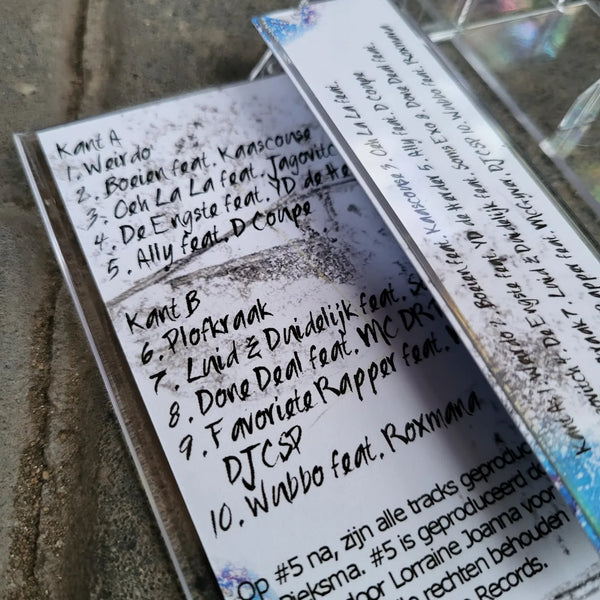 Kant A
1. Weirdo
2. Boeien feat. Kaascouse
3. Oeh La La feat. Jagovitc
4. De Engste feat. YD de He
5. Ally feat. D Coupe
Kant B
6. Plofkraak
7. Luid & Duidelijk feat.
8. Done Deal feat. MC DR
9. Favoriete Rapper feat.
DJ CSP
10. Wubbo feat. Roxmana
Op #5 na, zijn alle tracks geproduc
Dieksma. #5 is geproduceerd do
door Lorraine Joanna voor
le rechten behouden
Records.
Kant A: 1. Weirdo 2. Boeien feat. Kaascouse 3. Oeh La La feat.
4. De Engste feat. YD de Herder 5. Ally feat. D Coupe
7. Luid & Duidelijk feat. Sons Exo 8. Done Deal feat.
apper feat. DJ CSP 10. Wubbo feat. Roxmana